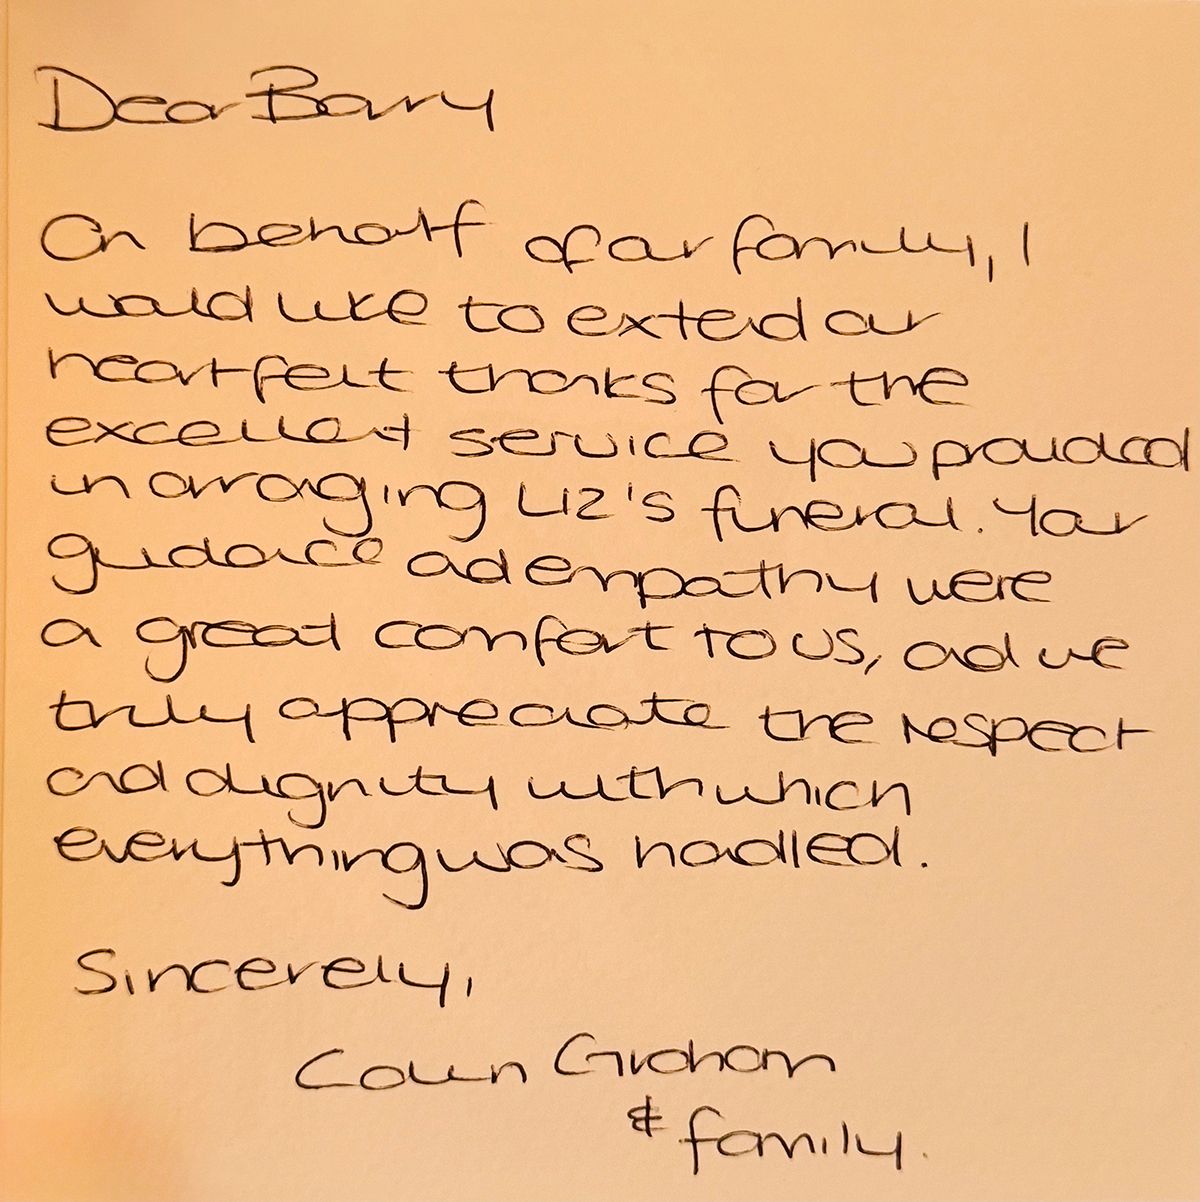 Dear Barry
On behalf of our family, I
would like to extend our
heartfelt thanks for the
excellent service you provided
in arranging Liz's funeral. Your
guidance and empathy were
a great comfort to us, and we
truly appreciate the respect
and dignity with which
everything was handled.
Sincerely,
Colin Graham
& family.